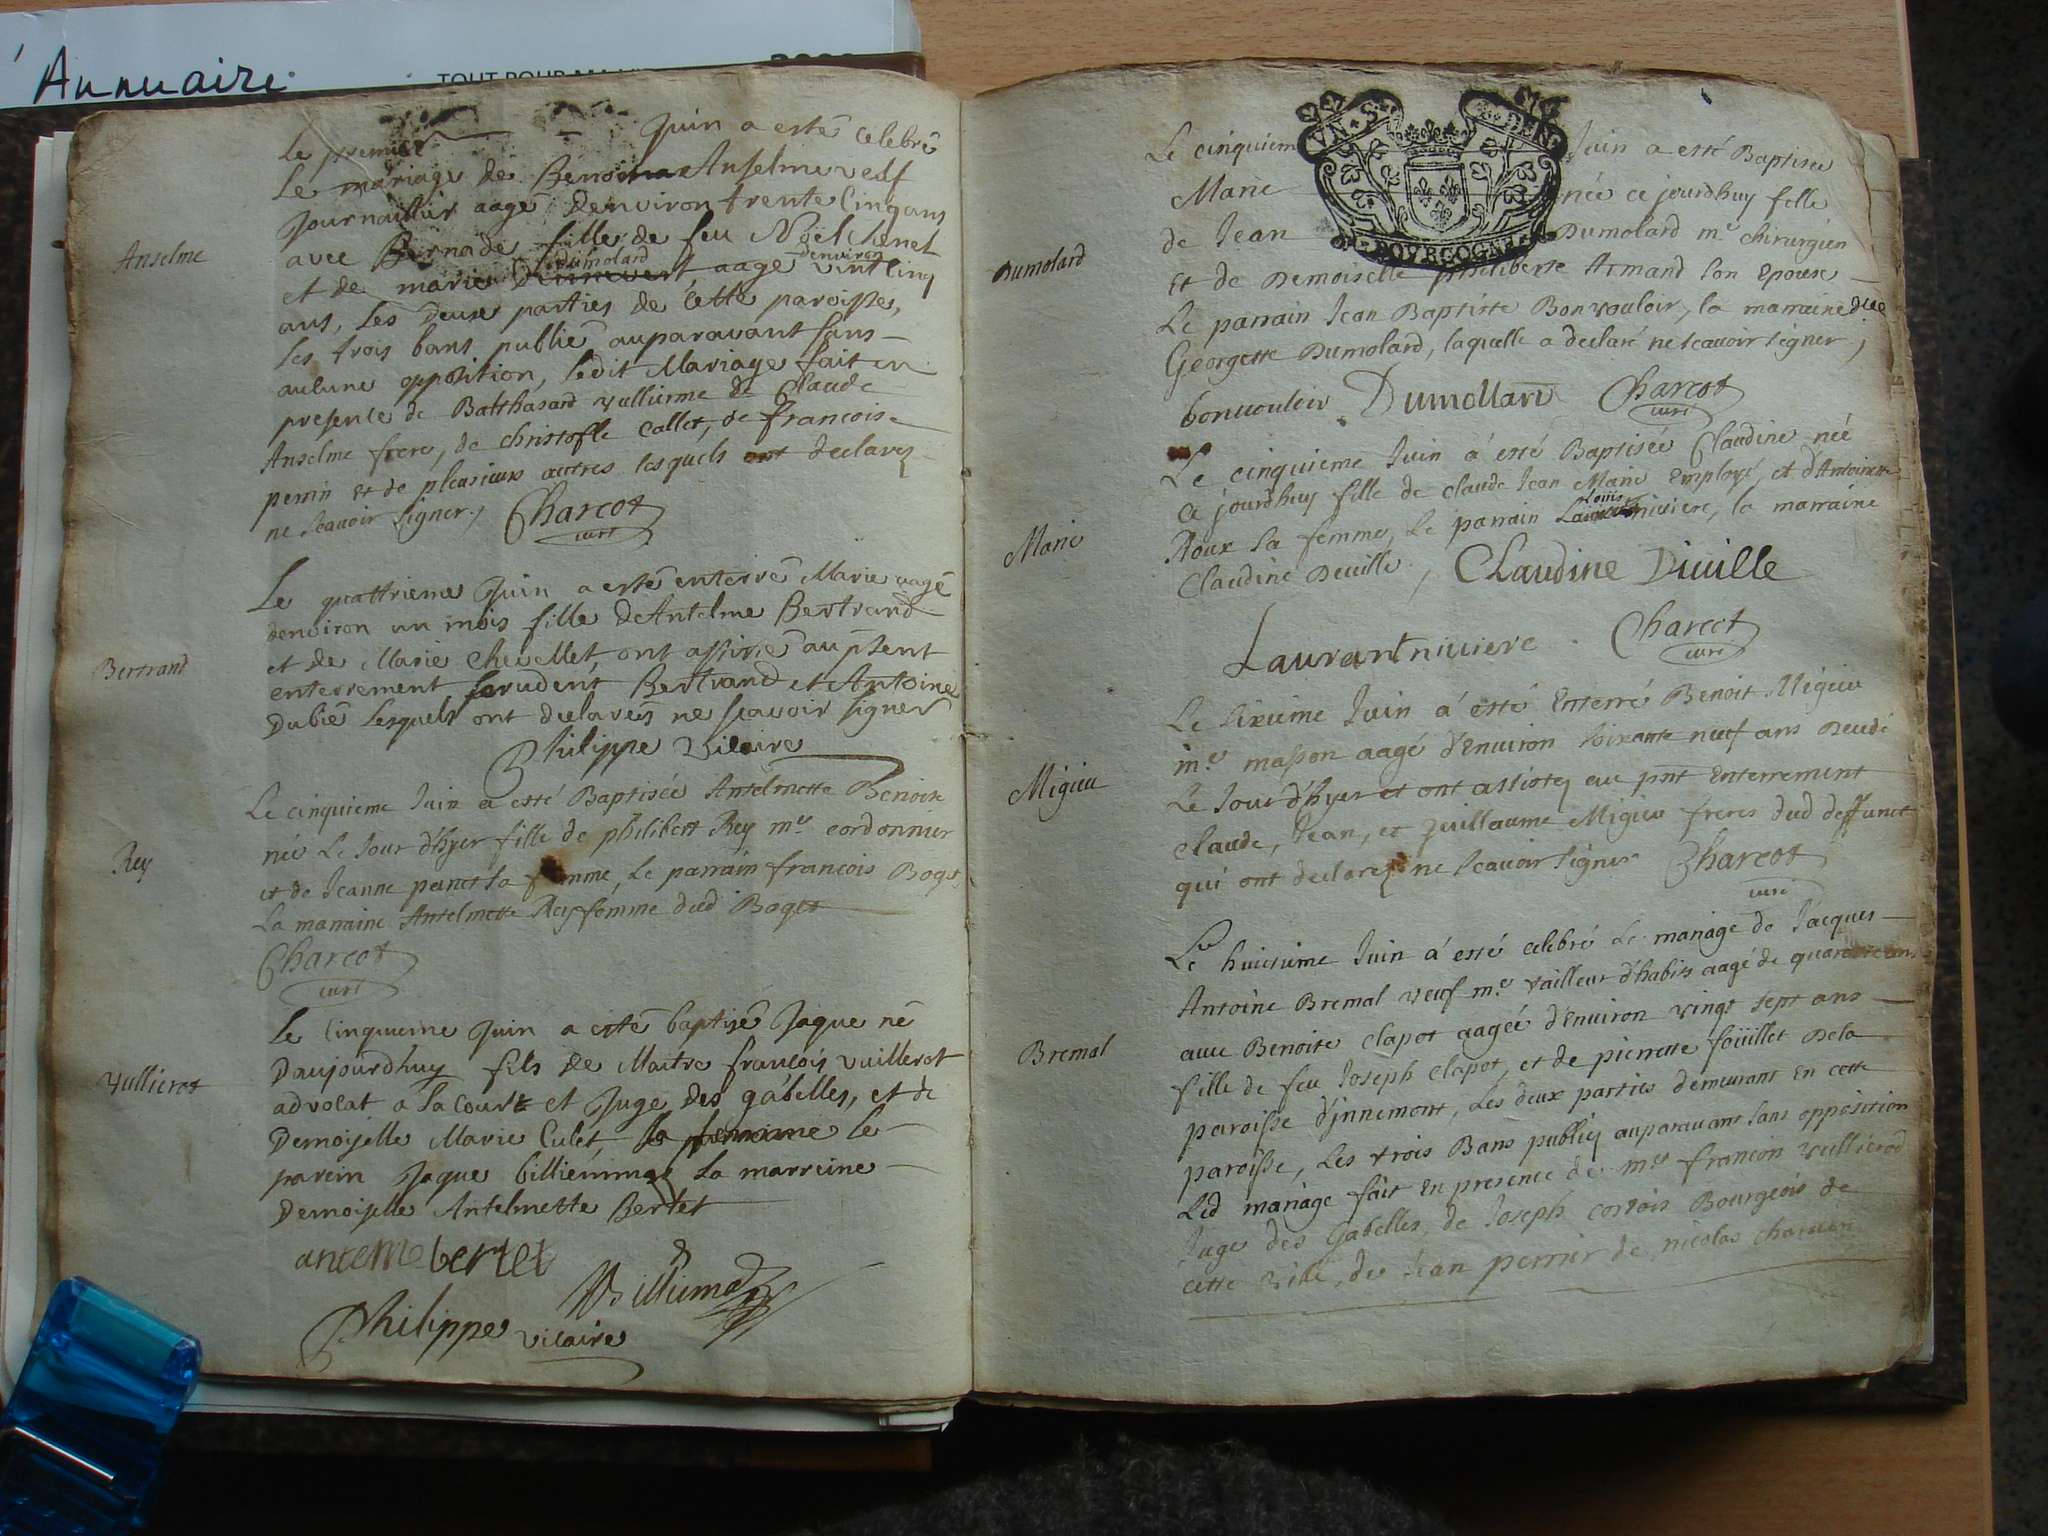 Annuaire
TOUT POUR
Le premier Juin a esté celebré
Le mariage de Anselme vesf
Journailler aagé denviron trente cinq ans
Anselme
avec Bernade fille de feu Noël Chenet
Dumolard denviron
et de marie aagé vint cinq
ans, Les Deux parties de cette paroisse,
Les trois bans publié auparavant sans
aulune opposition, ledit Mariage fait en
presente de Balthasard vulliernne de Claude
Anselme frere, de christofle Callet, de francoise
perrin et de plusieurs autres lesquels ont declarez
ne scavoir signer, Charcot
curé
Le quattrieme Juin a esté enterré Marie aagé
denviron un mois fille de Antelme Bertrand
Bertrand
et de Marie Chevellet, ont assisté au psent
enterrement, Bertrand et Antoine
Dubié Lesquels ont declareés ne scavoir signer
Philippe Vicaire
Le cinquieme Juin a esté Baptisée Antelmette Benoite
née Le Jour d'hyer fille de philibert Rey me cordonnier
Rey
et de Jeanne panet sa femme, Le parrain francois Boget
La marraine Antelmette Rey femme dud Boget
Charcot
curé
Le Cinquieme Juin a esté baptisé Jaque né
Daujourdhuy fils de Maitre francois vuillerot
Vullierot
advocat a la Cour et Juge Des gabelles, et de
Demoiselle Marie Culet, la femme le
parein Jaque billiemmaz La marreine
Demoiselle Antelmette Bertet
anteme bertet
Billiemaz
Philippe vicaire
UN S DEN
BOVRGOGNE
Le cinquiem Juin a esté Baptisée
Marie née ce jourdhuy fille
de Jean Dumolard me chirurgien
Dumolard
et de Demoiselle philiberte Armand son Epouse
Le parrain Jean Baptiste Bonvouloir, la marraine dlle
Georgette Dumolard, laquelle a declaré ne scavoir signer,
bonvouloir Dumollard Charcot
curé
Le cinquieme Juin á esté Baptisée Claudine née
ce jourdhuy fille de claude Jean Marie Employé, et d'Antoinette
Louis
Marie
Roux sa femme, Le parrain niviere, la marraine
Claudine Deville, Claudine Diville
Laurant niviere Charcot
curé
Le sixieme Juin á esté Enterré Benoit Migieu
me masson aagé d'Environ soixante neuf ans decedé
Migieu
Le Jour d'hyer et ont assistez au pnt Enterrement
claude, Jean, et guillaume Migieu freres dud deffunct
qui ont declarez ne scavoir signer Charcot
curé
Le huictieme Juin á esté celebré Le mariage de Jacques
Antoine Bremal veuf me tailleur d'habits aagé de quarante ans
Bremal
avec Benoite clapot aagée d'environ vingt sept ans
fille de feu Joseph clapot, et de pierrette foüillet Dela
paroisse d'jnnemont, Les deux parties demeurant En cette
paroisse, Les trois Bans publiez auparavant sans opposition
Led mariage fait En presence de me francois vullierod
Juge des Gabelles, de Joseph cortois Bourgeois de
cette ville, de Jean perrier de nicolas